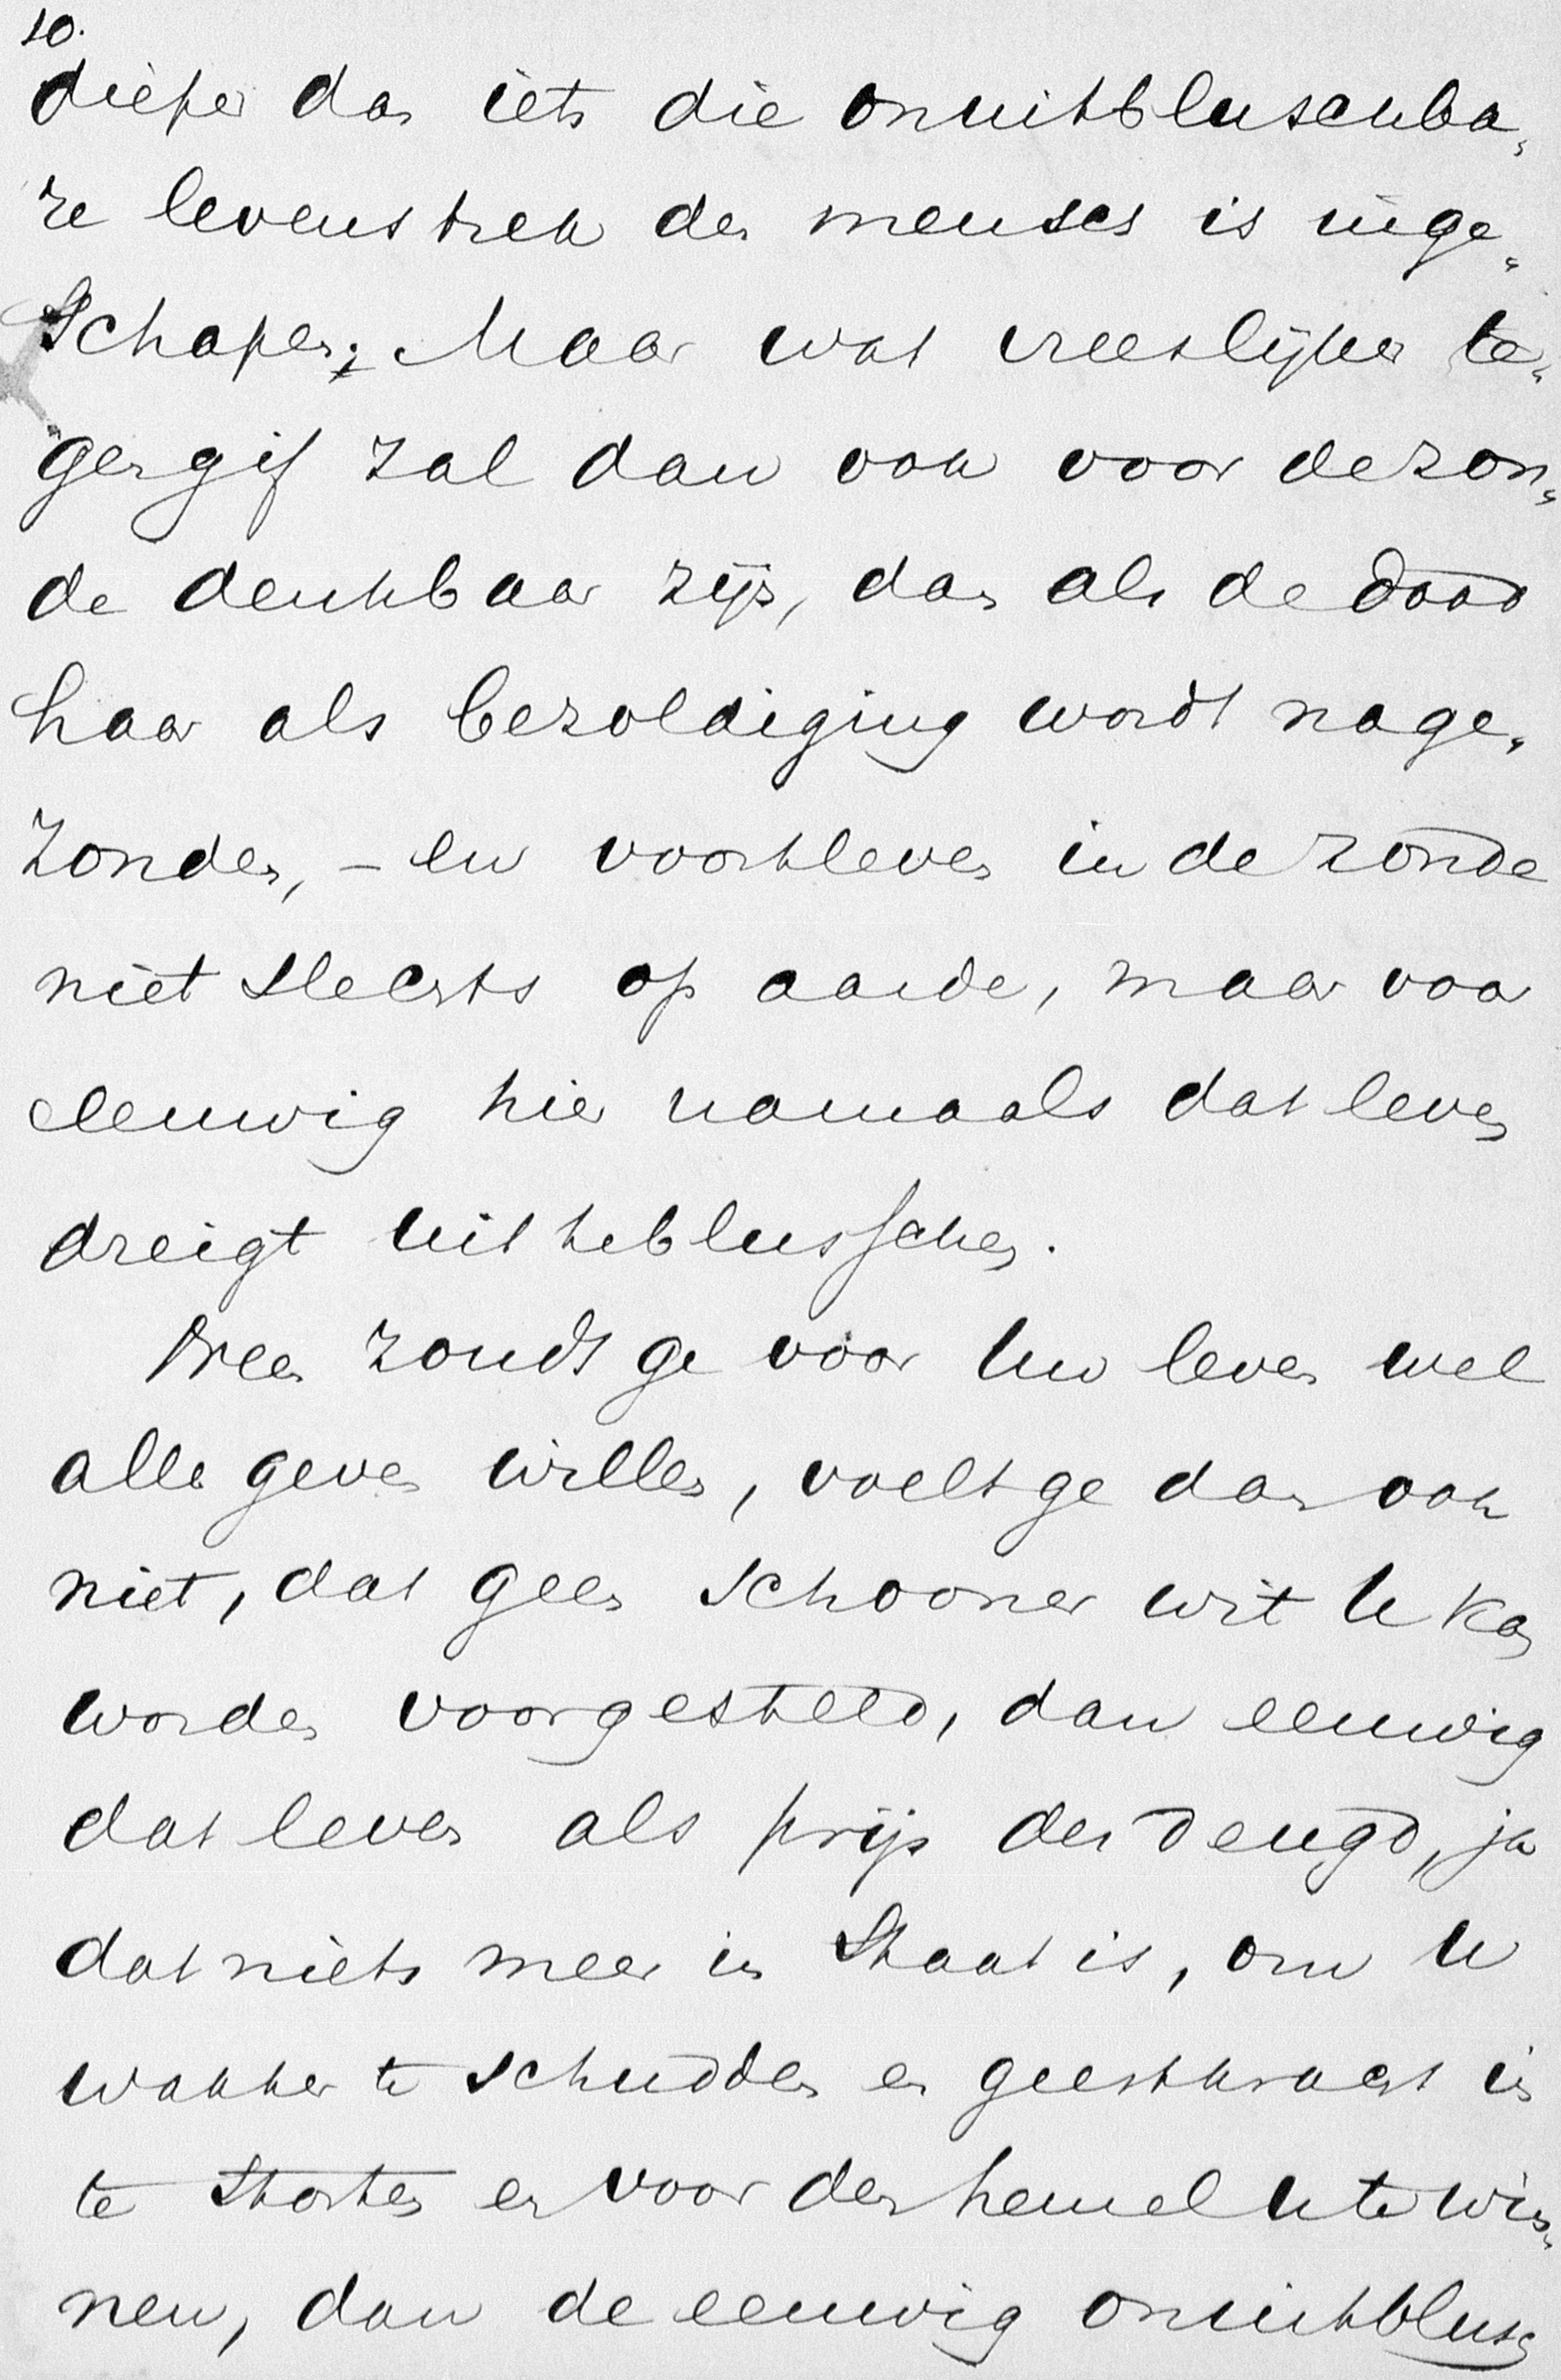 10.
dieper dan iets die onuitbluschba„
re levenstrek den mensch is inge„
schapen; Maar wat vreeslijker te„
gengif zal dan ook voor de zon„
de denkbaar zijn, dan als de dood
haar als bezoldiging wordt nage„
zonden, – en voortleven in de zonde
niet slechts op aarde, maar voor
eeuwig hier namaals dat leven
dreigt uit te blusschen.
Neen zoudt ge voor Uw leven wel
alles geven willen, voelt ge dan ook
niet, dat geen schooner wit U kan
worden voorgesteld, dan eeuwig
dat leven als prijs der deugd, ja
dat niets meer in staat is, om U
wakker te schudden en geestkracht in
te storten en voor den hemel U te win„
nen, dan de eeuwig onuitblusch